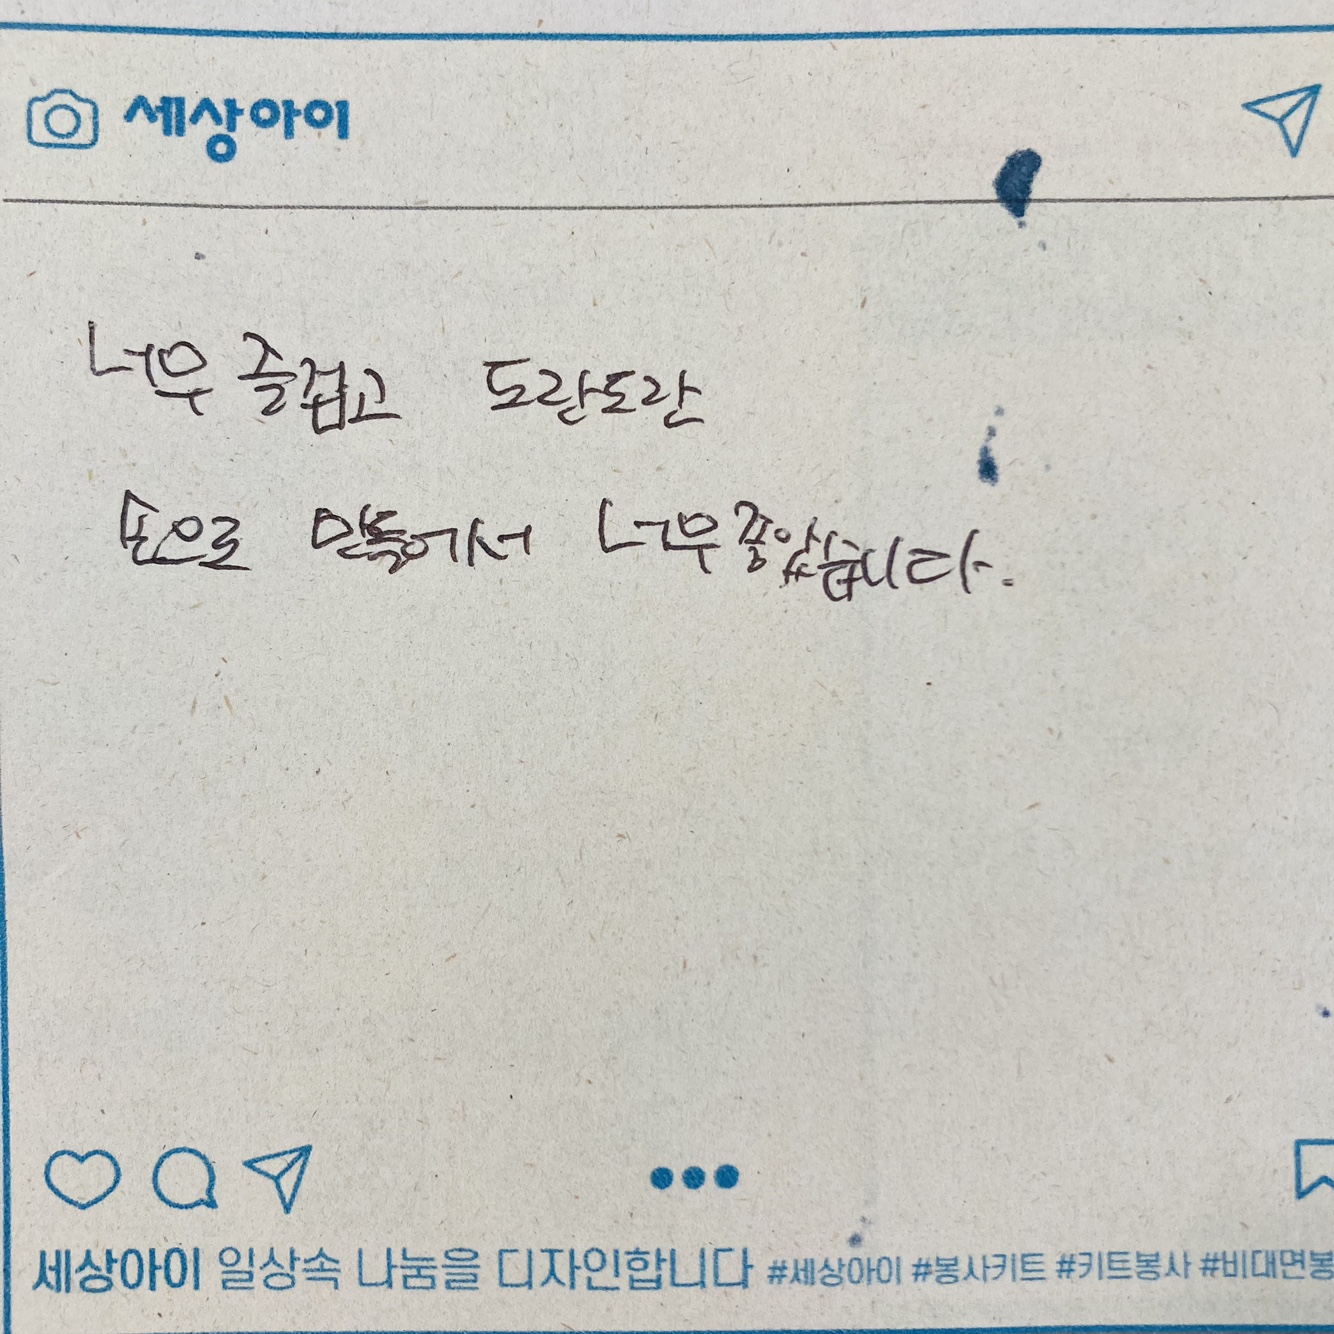 세상아이
너무 즐겁고 도란도란
손으로 만들어서 너무 좋았습니다.
세상아이 일상속 나눔을 디자인합니다 #세상아이 #봉사키트 #키트봉사 #비대면봉